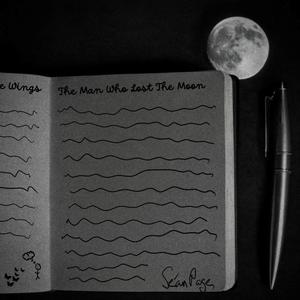 e Wings
The Man Who Lost The Moon
Sean Page